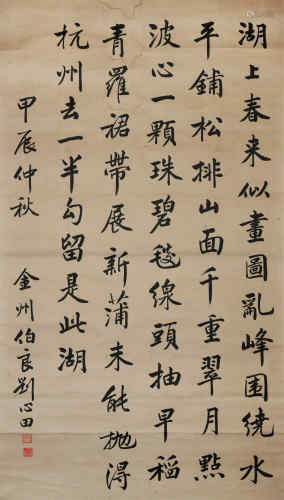 湖上春来似畫圖亂峰围绕水
平鋪松排山面千重翠月點
波心一顆珠碧毯線頭抽早稻
青羅裙帶展新蒲未能抛得
杭州去一半勾留是此湖
甲辰仲秋 金州伯良劉心田